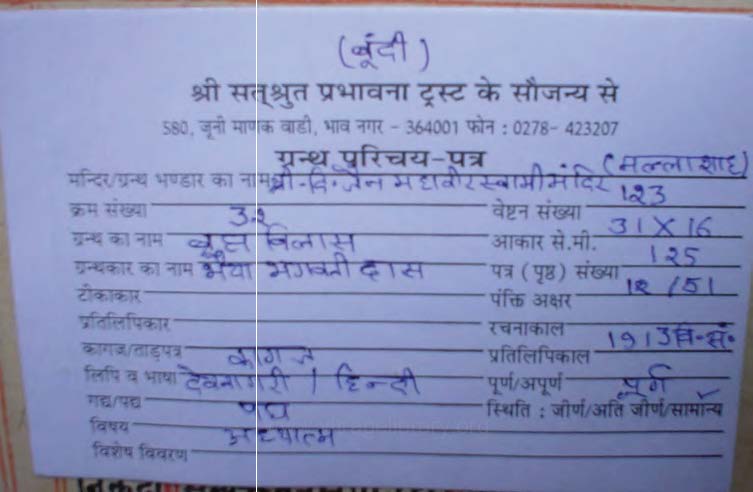 (बूंदी)
श्री सत्श्रुत प्रभावना ट्रस्ट के सौजन्य से
580, जूनी माणक वाडी, भाव नगर - 364001 फोन : 0278- 423207
ग्रन्थ परिचय-पत्र (मल्लाशाह)
मन्दिर/ग्रन्थ भण्डार का नाम श्री-दि-जैन महावीर स्वामी मंदिर
क्रम संख्या 32 वेष्टन संख्या 123
ग्रन्थ का नाम ब्रह्म विलास आकार से.मी. 31 X 16
ग्रन्थकार का नाम भैया भगवती दास पत्र (पृष्ठ) संख्या 125
टीकाकार पंक्ति अक्षर 12 / 51
प्रतिलिपिकार रचनाकाल
कागज/ताड़पत्र कागज प्रतिलिपिकाल 1913 वि-सं॰
लिपि व भाषा देवनागरी / हिन्दी पूर्ण/अपूर्ण पूर्ण
गद्य/पद्य पद्य स्थिति : जीर्ण/अति जीर्ण/सामान्य
विषय अध्यात्म
विशेष विवरण